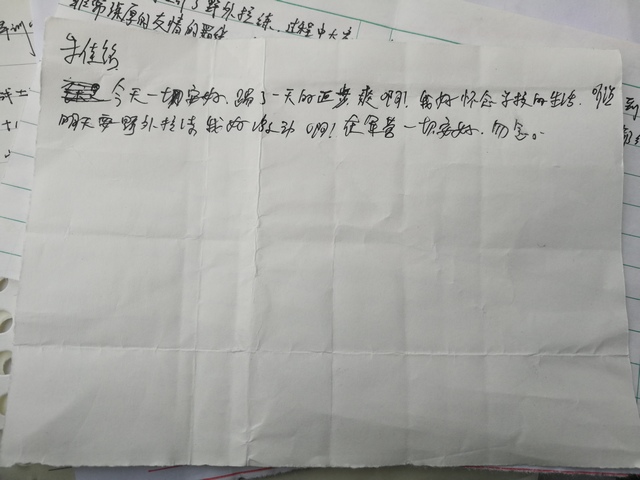 非常深厚的友情的
了野外拉练，过程中大家
牛佳铭
今天一切安好，踢了一天的正步累啊！我好怀念学校的生活，听说
明天要野外拉练我好激动啊！在军营一切安好，勿念。
战士
到